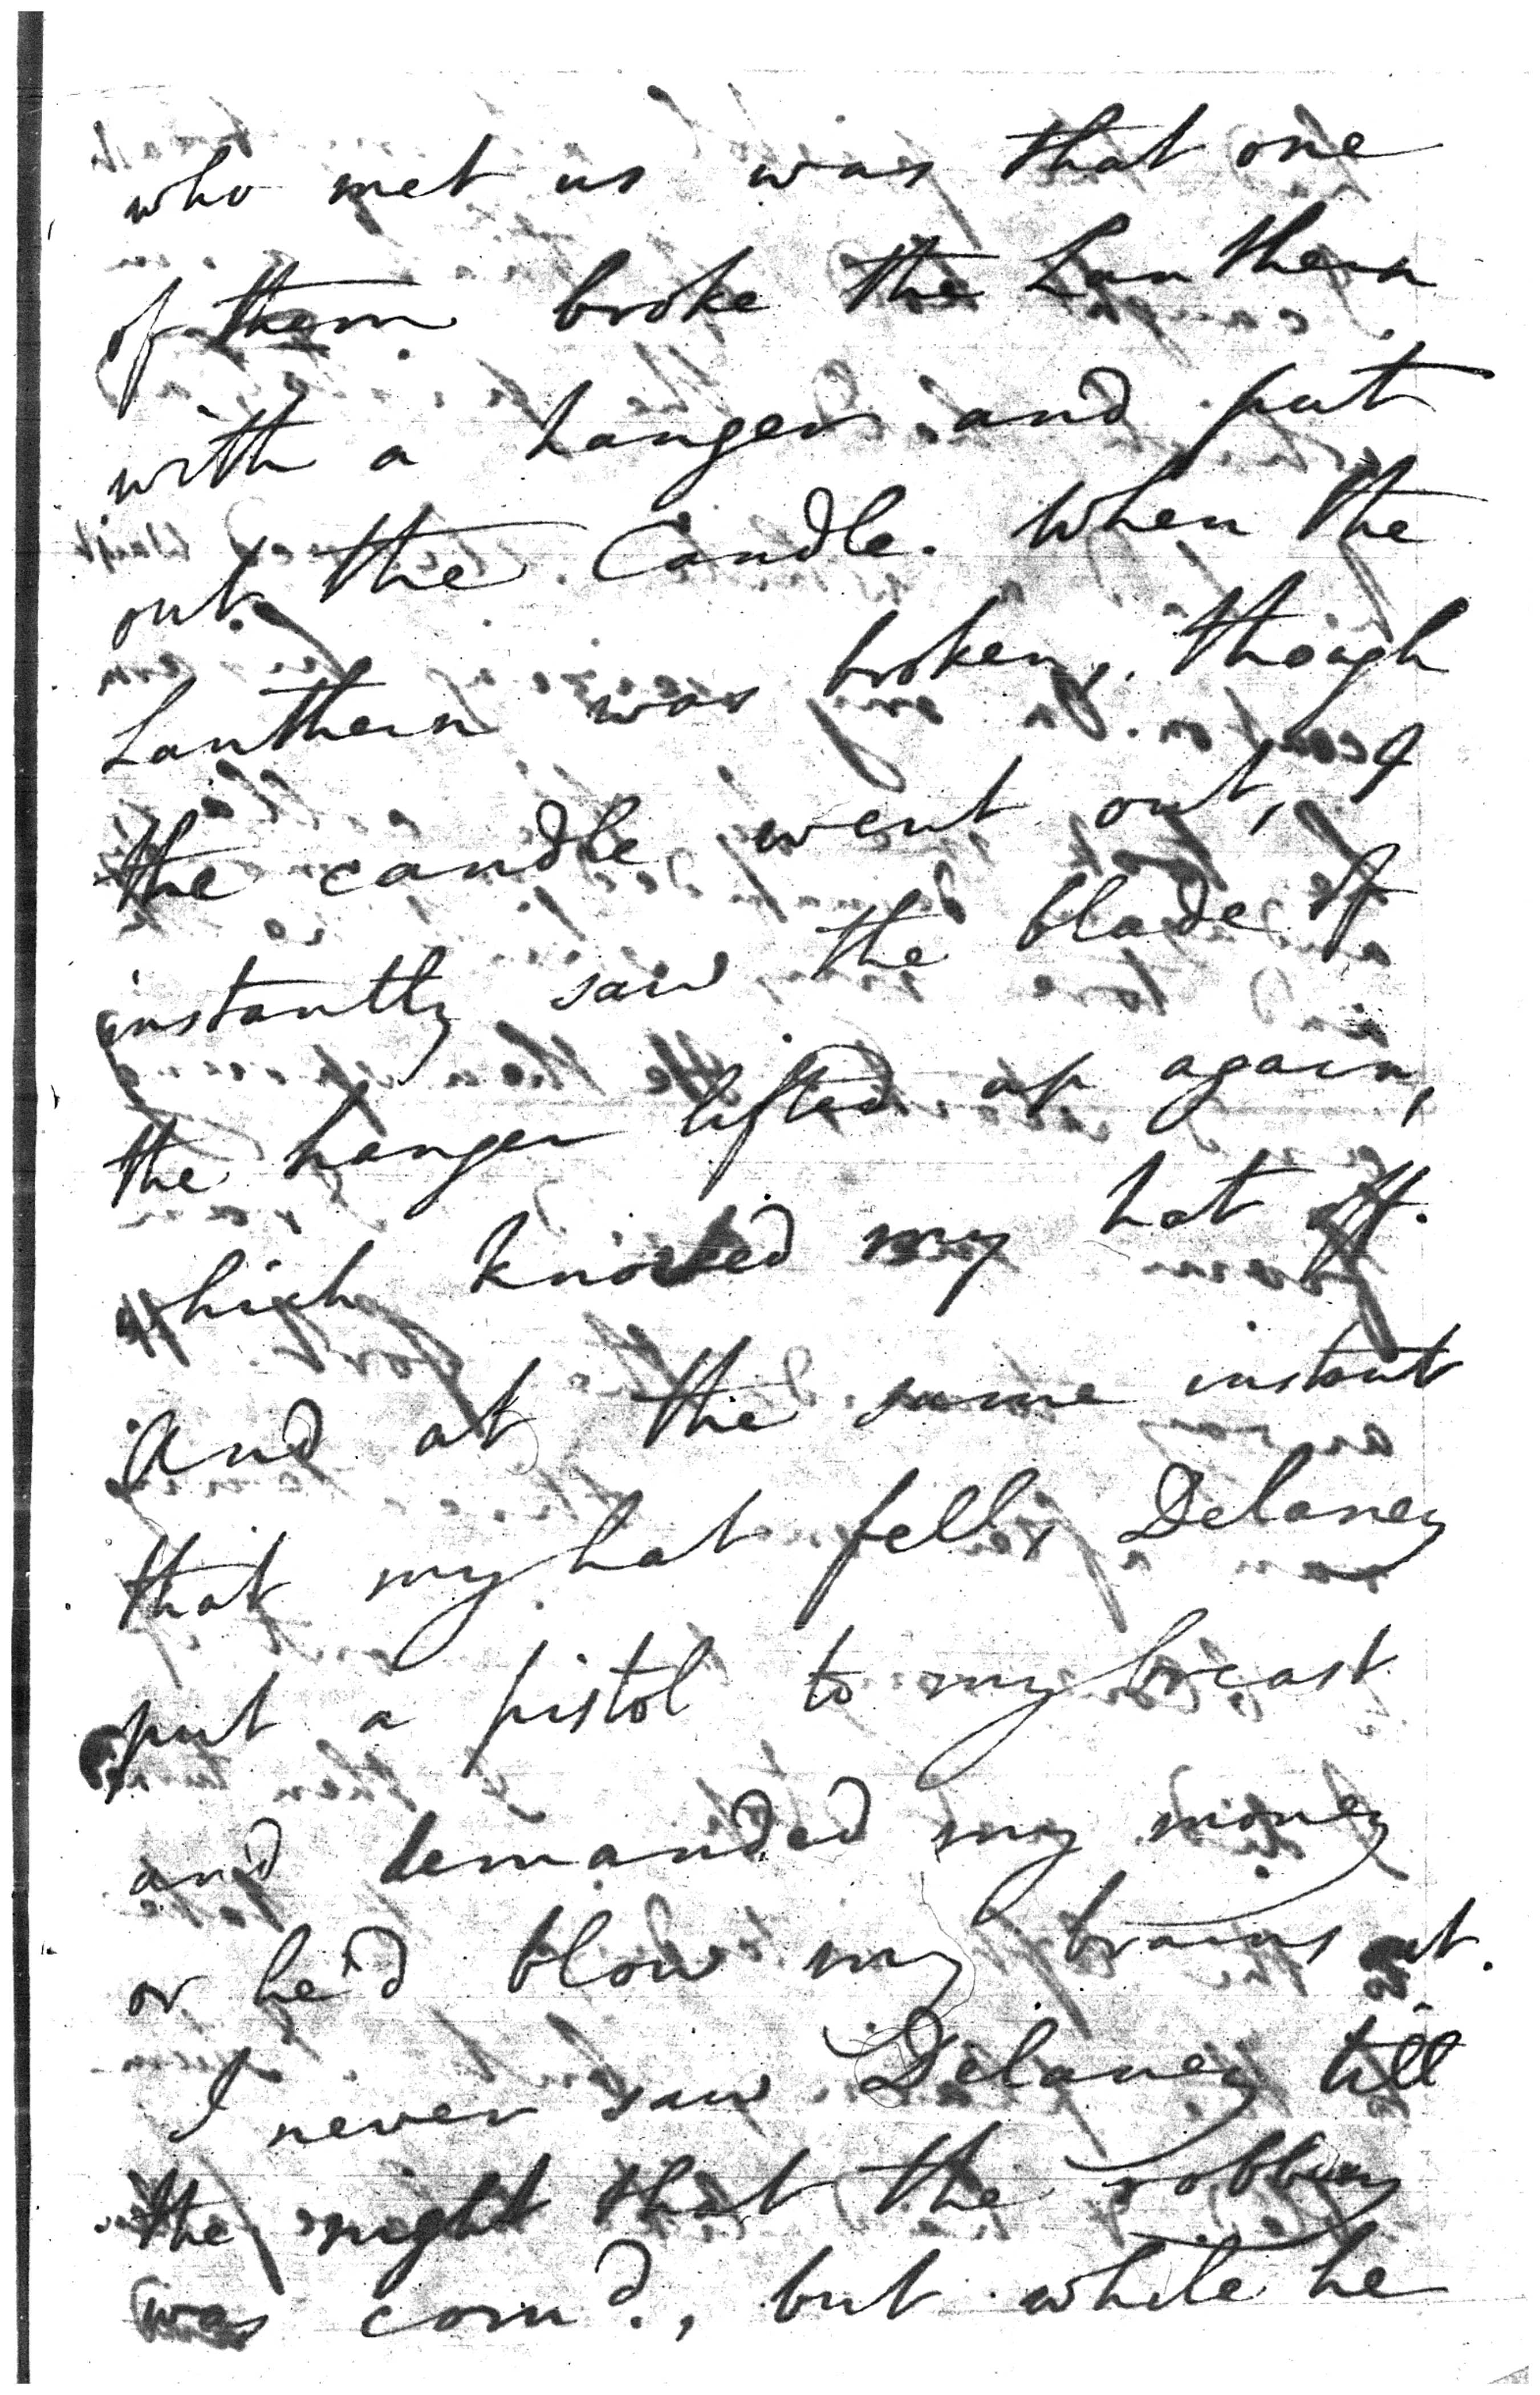 who met us was that one
of them broke the Lanthern
with a hanger and put
out the Candle. When the
Lanthern was broken, though
the candle went out, I
instantly saw the blade of
the hanger lifted up again,
which knocked my hat off.
And at the same instant
that my hat fell, Delaney
put a pistol to my breast
and demanded my money
or he'd blow my brains out.
I never saw Delaney till
the night that the robbery
was comd., but while he